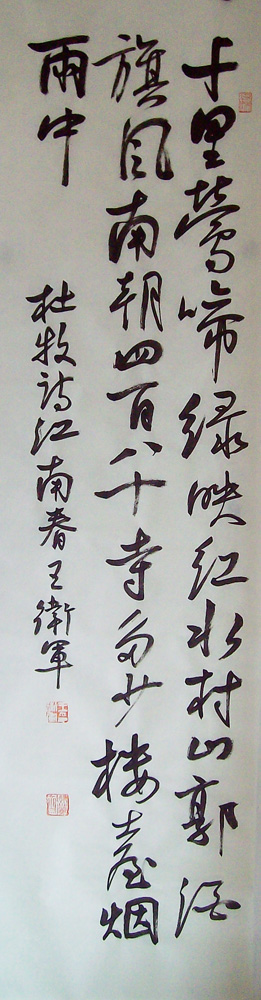 十里鶯啼绿映红水村山郭酒
旗风南朝四百八十寺多少楼臺烟
雨中
杜牧诗江南春王衛軍